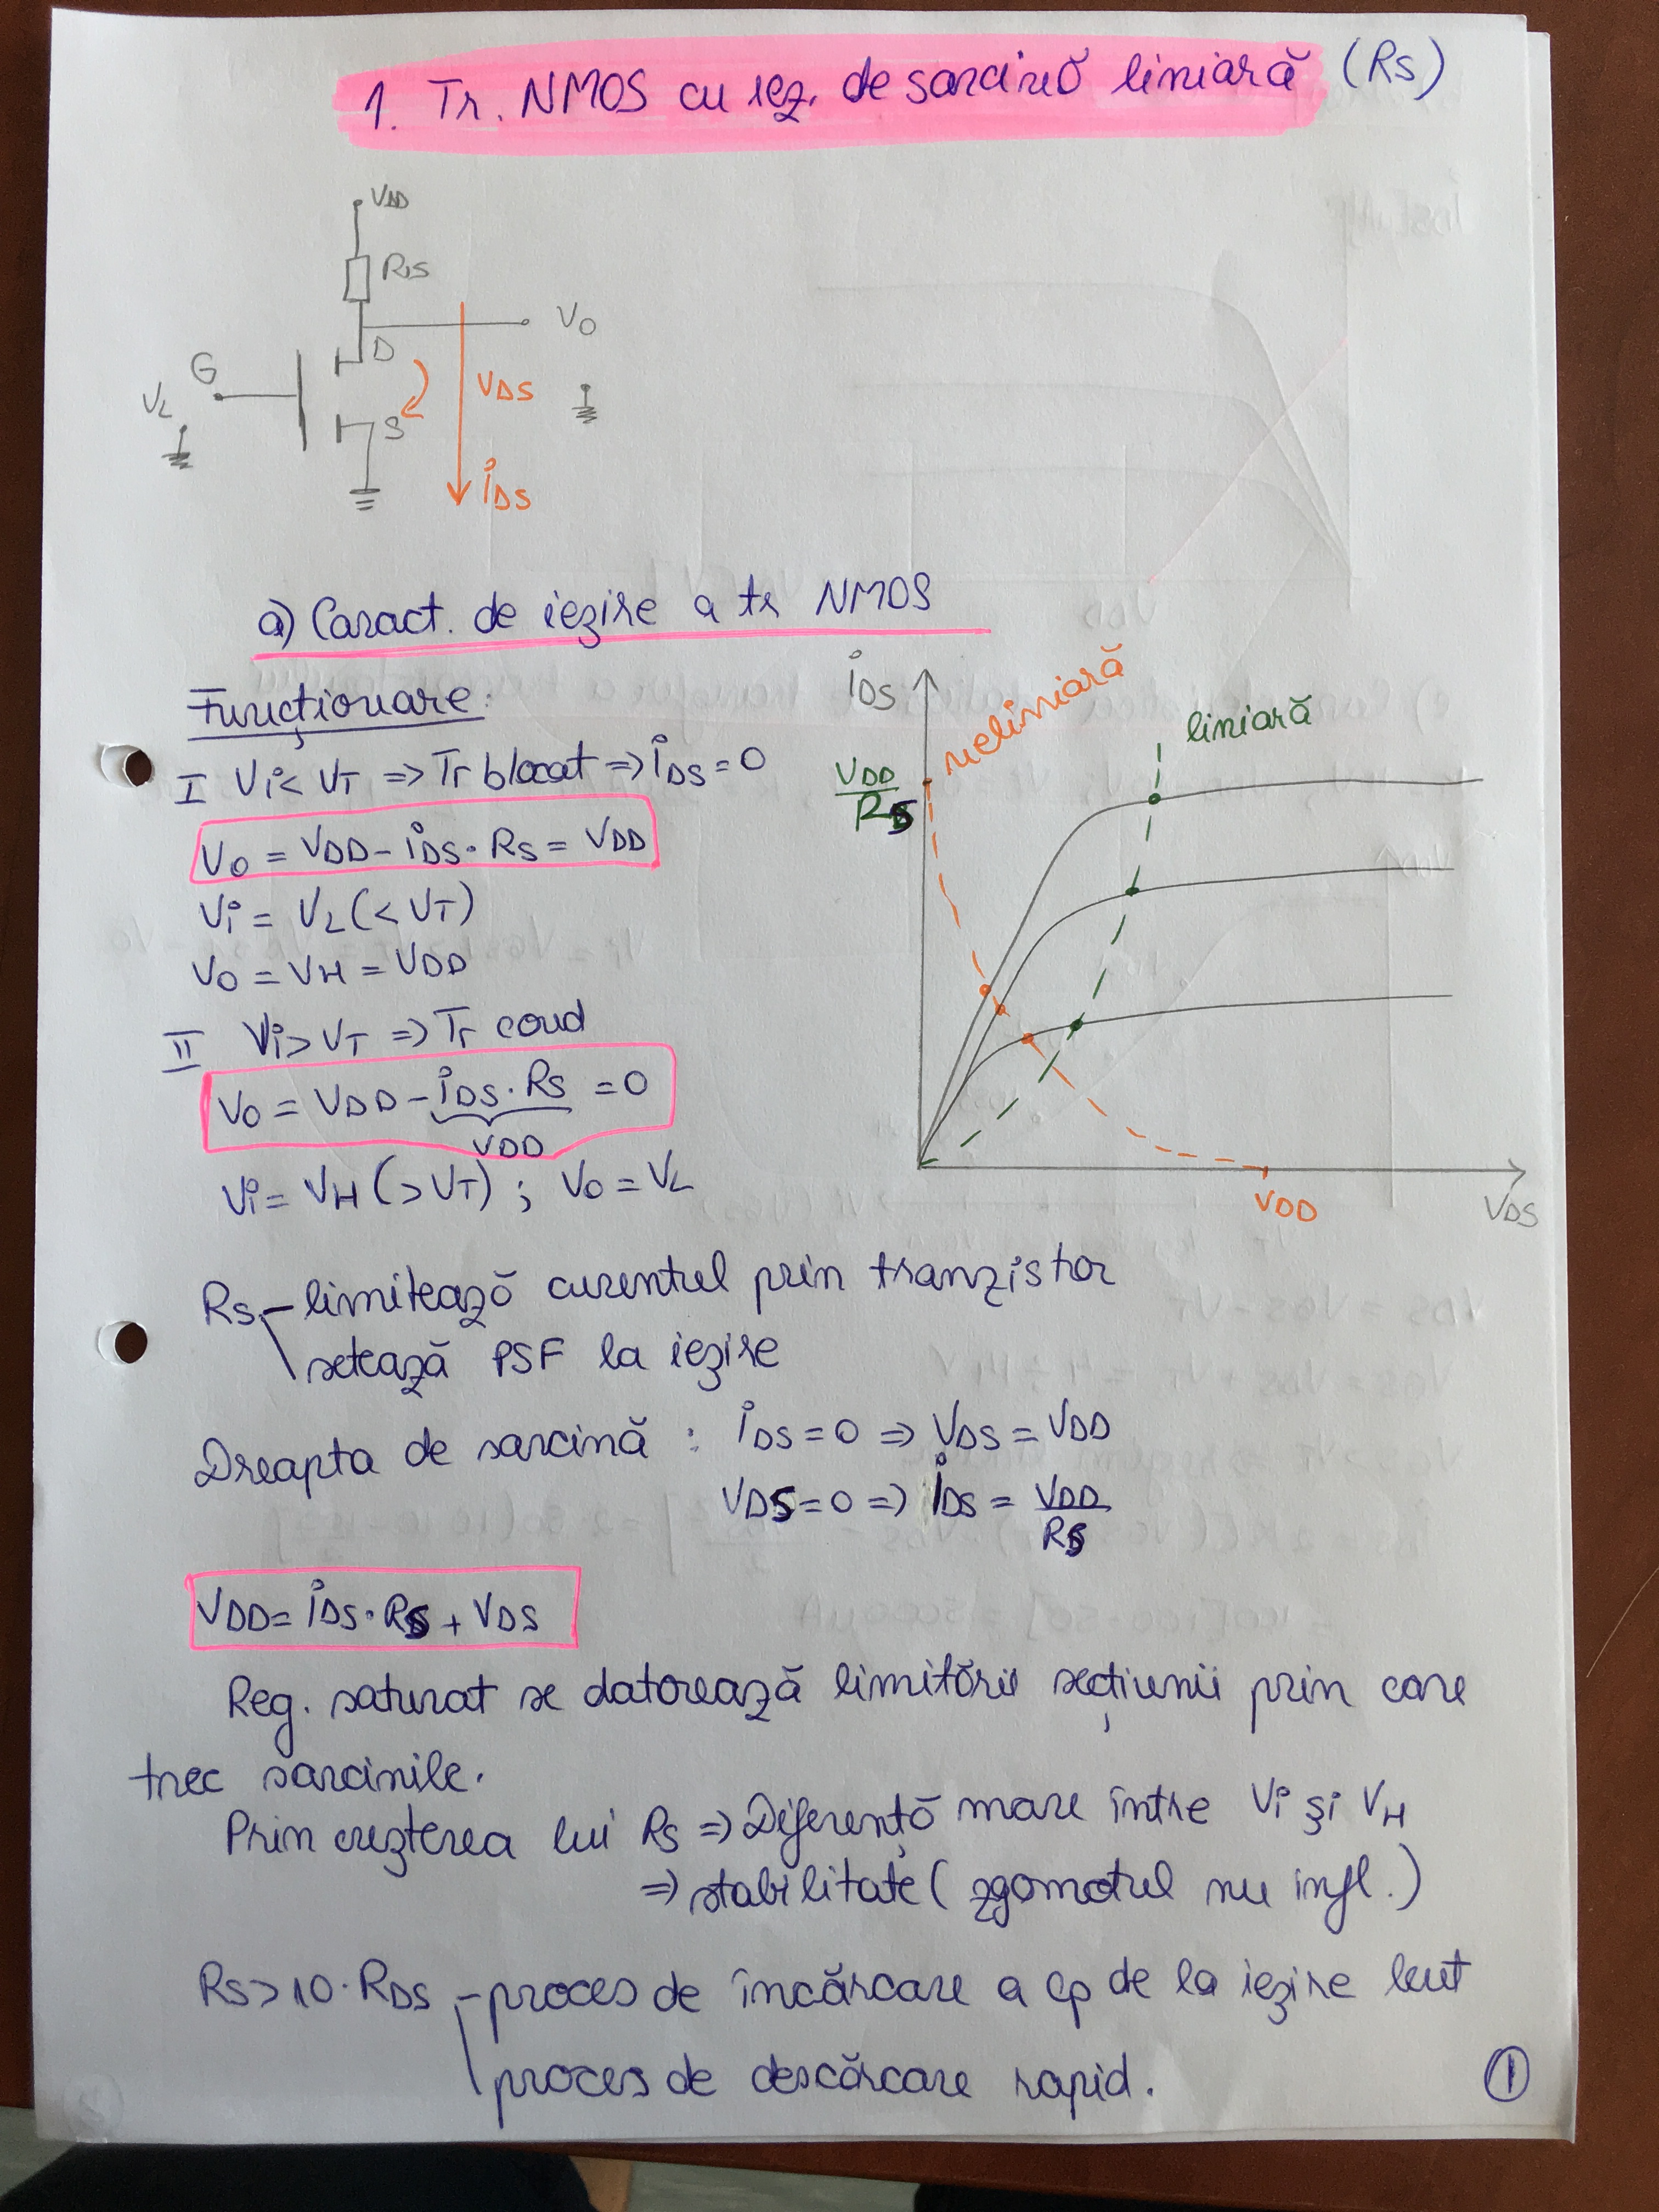 1. Tr. NMOS cu rez. de sarcină liniară (RS)
VDD
RS
VO
D
G
VDS
VL
S
iDS
a) Caract. de ieșire a tr NMOS
Funcționare:
I Vi < VT => Tr blocat => iDS = 0
VO = VDD - iDS · RS = VDD
Vi = VL (< VT)
VO = VH = VDD
II Vi > VT => Tr cond
VO = VDD - iDS · RS = 0
VDD
Vi = VH (> VT) ; VO = VL
iDS
neliniară
liniară
VDD
RS
VDD
VDS
RS - limitează curentul prin tranzistor
setează PSF la ieșire
Dreapta de sarcină : iDS = 0 => VDS = VDD
VDS = 0 => iDS = VDD / RS
VDD = iDS · RS + VDS
Reg. saturat se datorează limitării secțiunii prin care
trec sarcinile.
Prin creșterea lui RS => Diferență mare între Vi și VH
=> stabilitate ( zgomotul nu infl. )
RS > 10 · RDS - proces de încărcare a cp de la ieșire lent
proces de descărcare rapid.
1